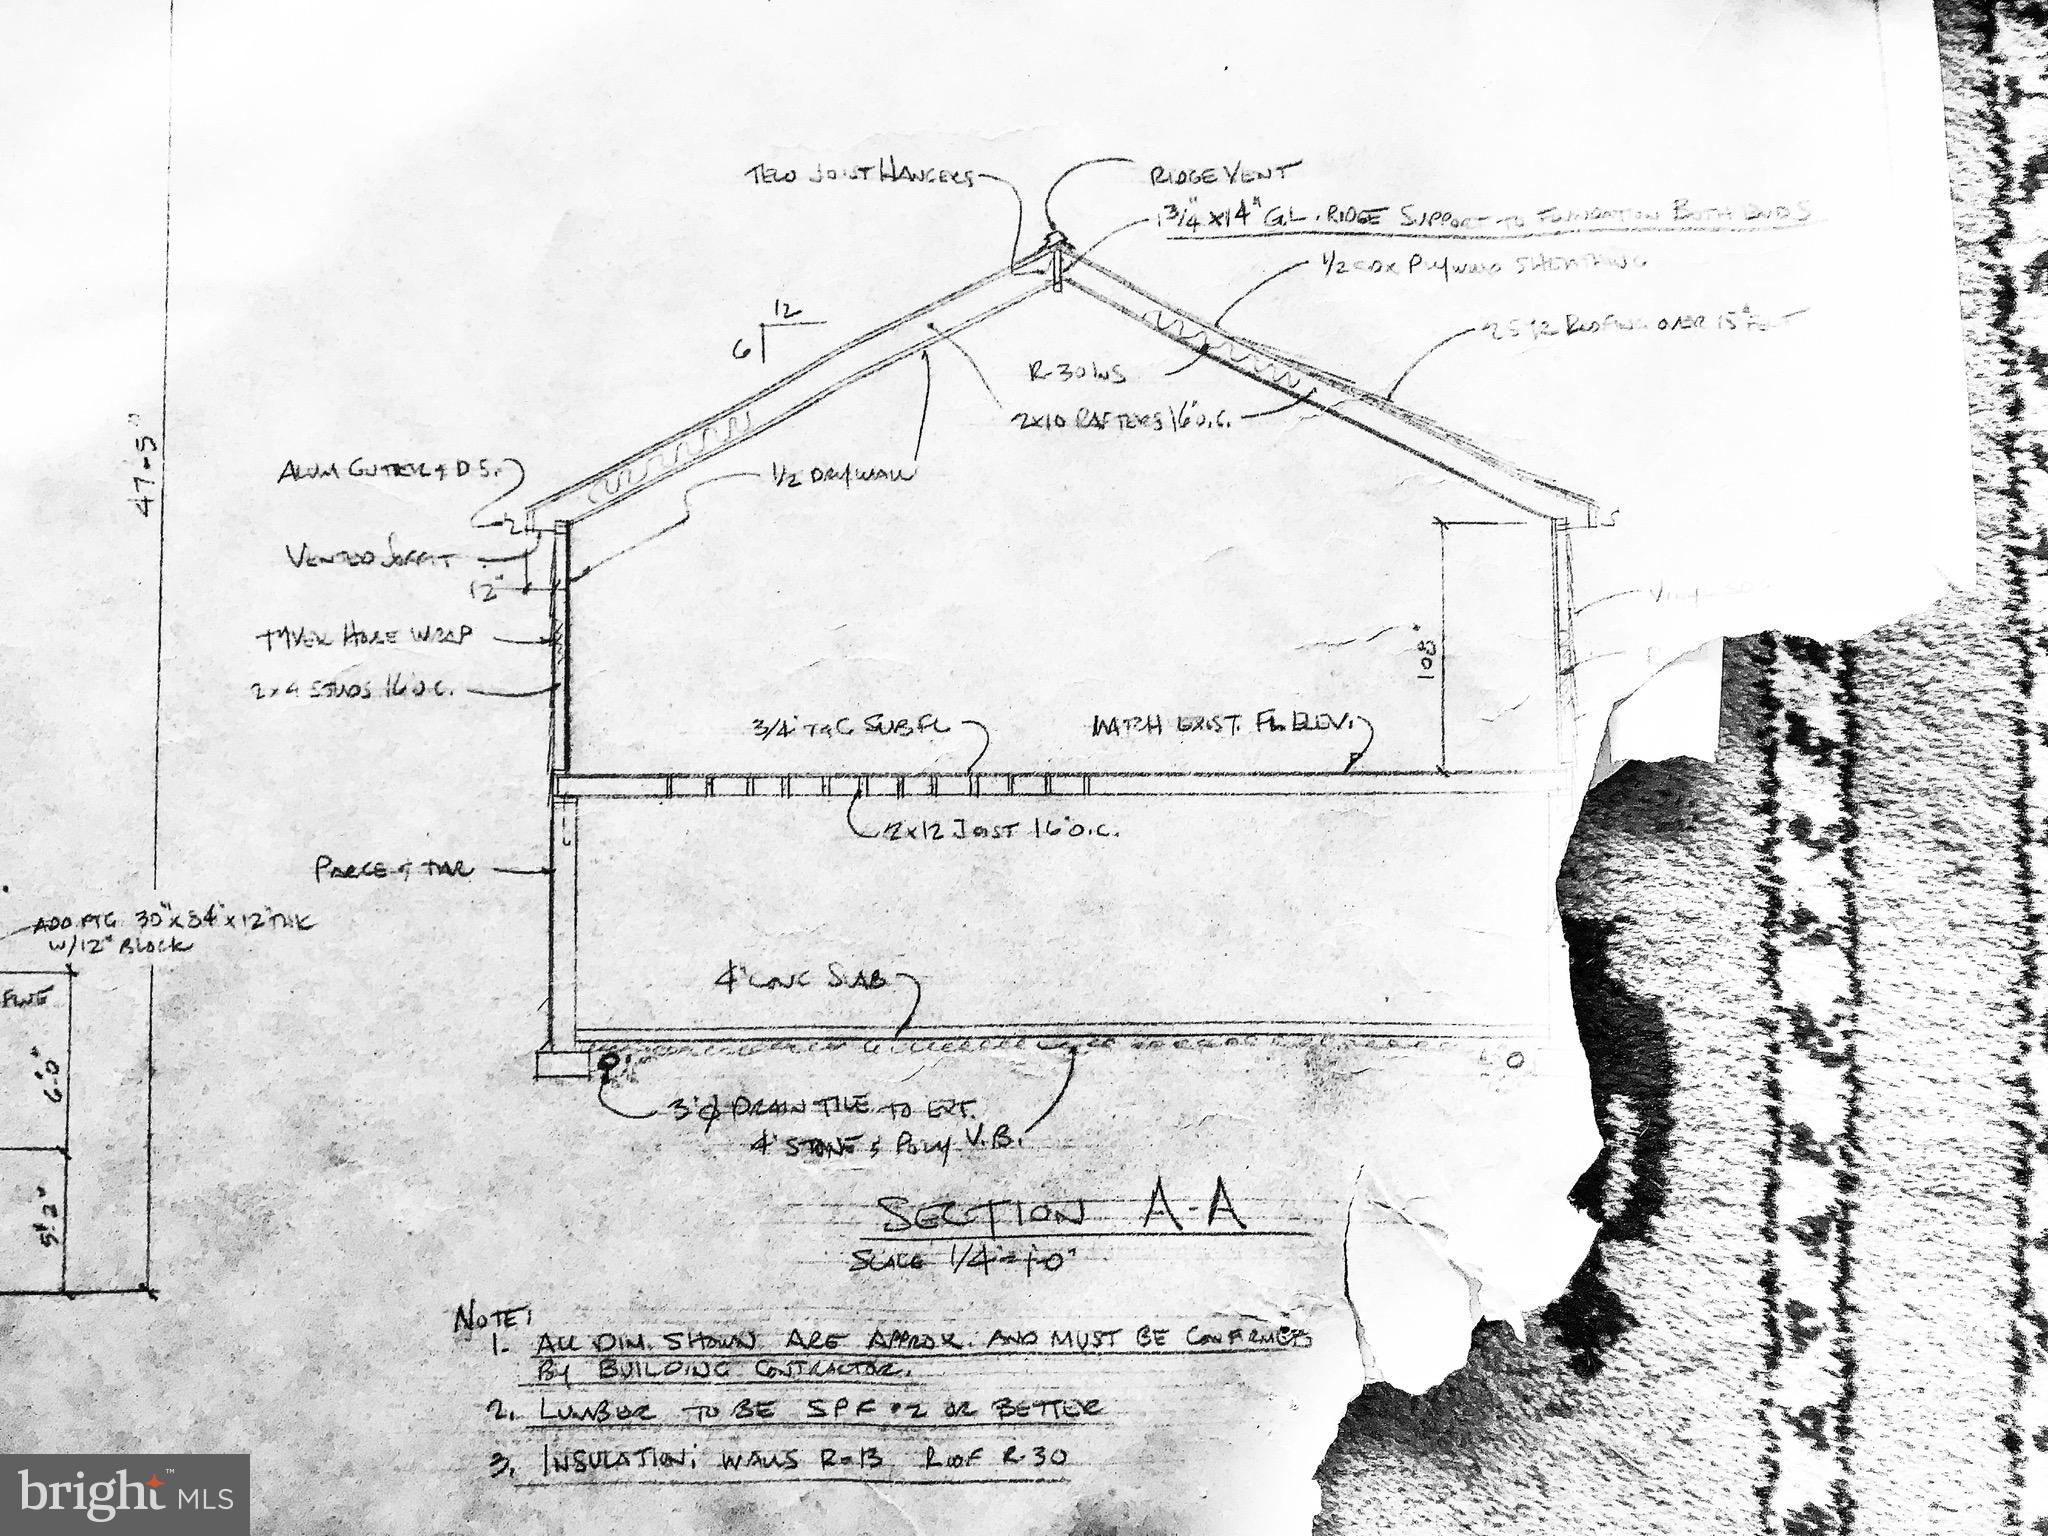 TECO JOIST HANGERS
RIDGE VENT
1 3/4"x14" G.L. RIDGE SUPPORT TO FOUNDATION BOTH ENDS
1/2 CDX PLYWOOD SHEATHING
12
6
ROOFING OVER 15# FELT
R-30 INS
2x10 RAFTERS 16"O.C.
47'-5"
ALUM GUTTER & D.S.
1/2 DRYWALL
VENTED SOFFIT
12"
TYVEK HOUSE WRAP
2x4 STUDS 16"O.C.
3/4" T&G SUBFL
MATCH EXIST. FL. ELEV.
2x12 JOIST 16"O.C.
PARGE & TAR
ADD FTG 30"x34"x12"THK
W/12" BLOCK
4" CONC SLAB
6'-0"
3"ϕ DRAIN TILE TO EXT.
4" STONE & POLY V.B.
5'-2"
SECTION A-A
SCALE 1/4"=1'-0"
NOTE:
1. ALL DIM. SHOWN ARE APPROX. AND MUST BE CONFIRMED
BY BUILDING CONTRACTOR.
2. LUMBER TO BE SPF #2 OR BETTER
3. INSULATION: WALLS R-13 ROOF R-30
bright™ MLS